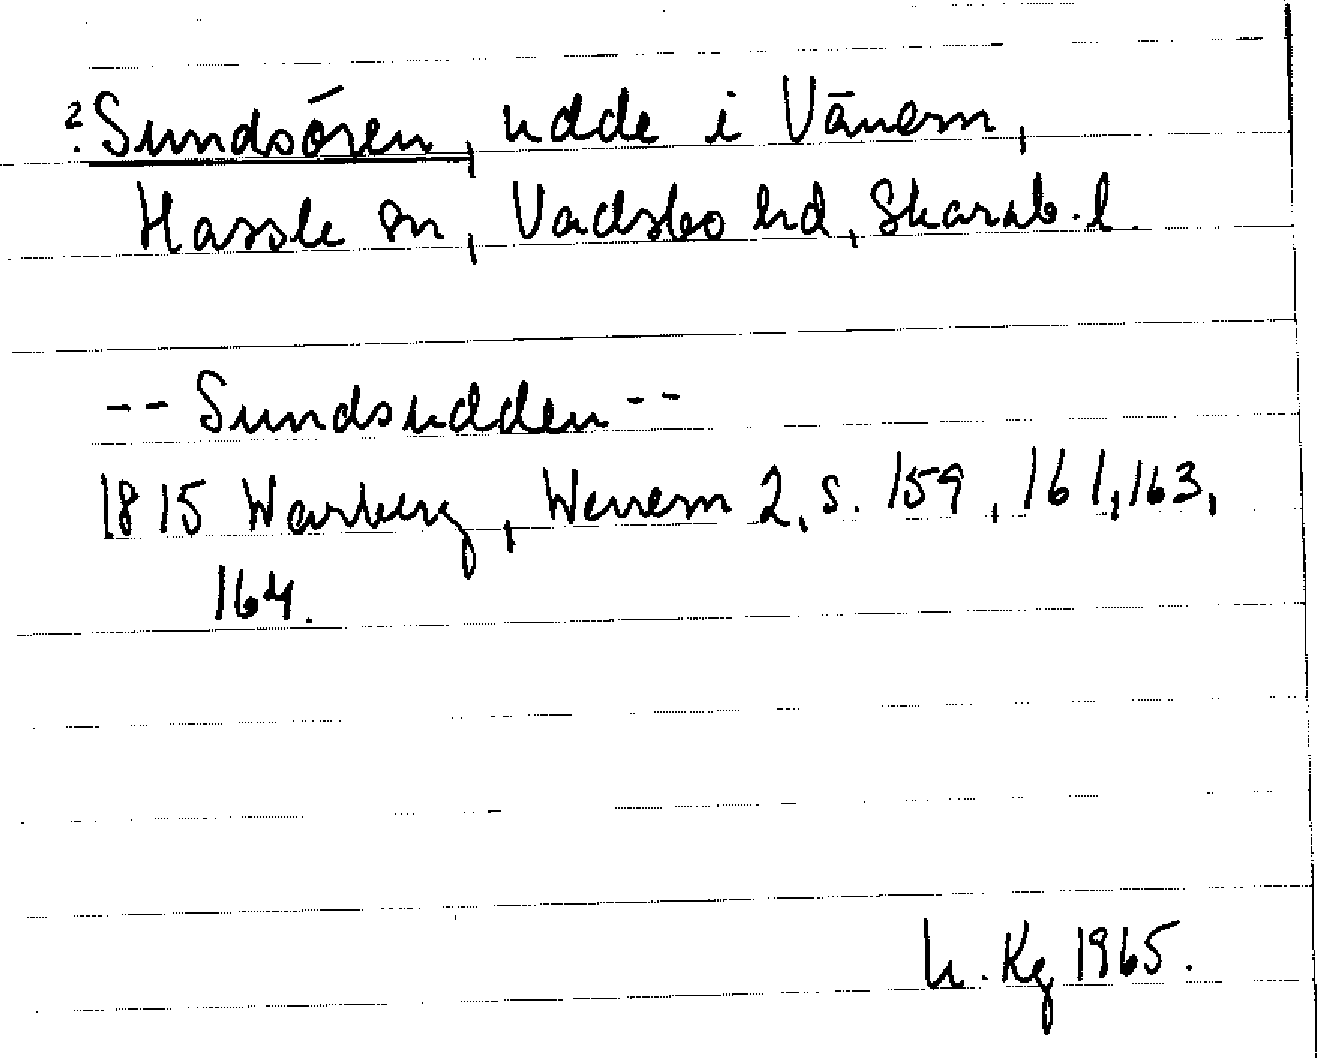 ?Sundsören, udde i Vänern,
Hassle sn, Vadsbo hd, Skarab. l.
-- Sundsudden --
1815 Warberg, Wenern 2, s. 159, 161, 163,
164.
h. Kg 1965.